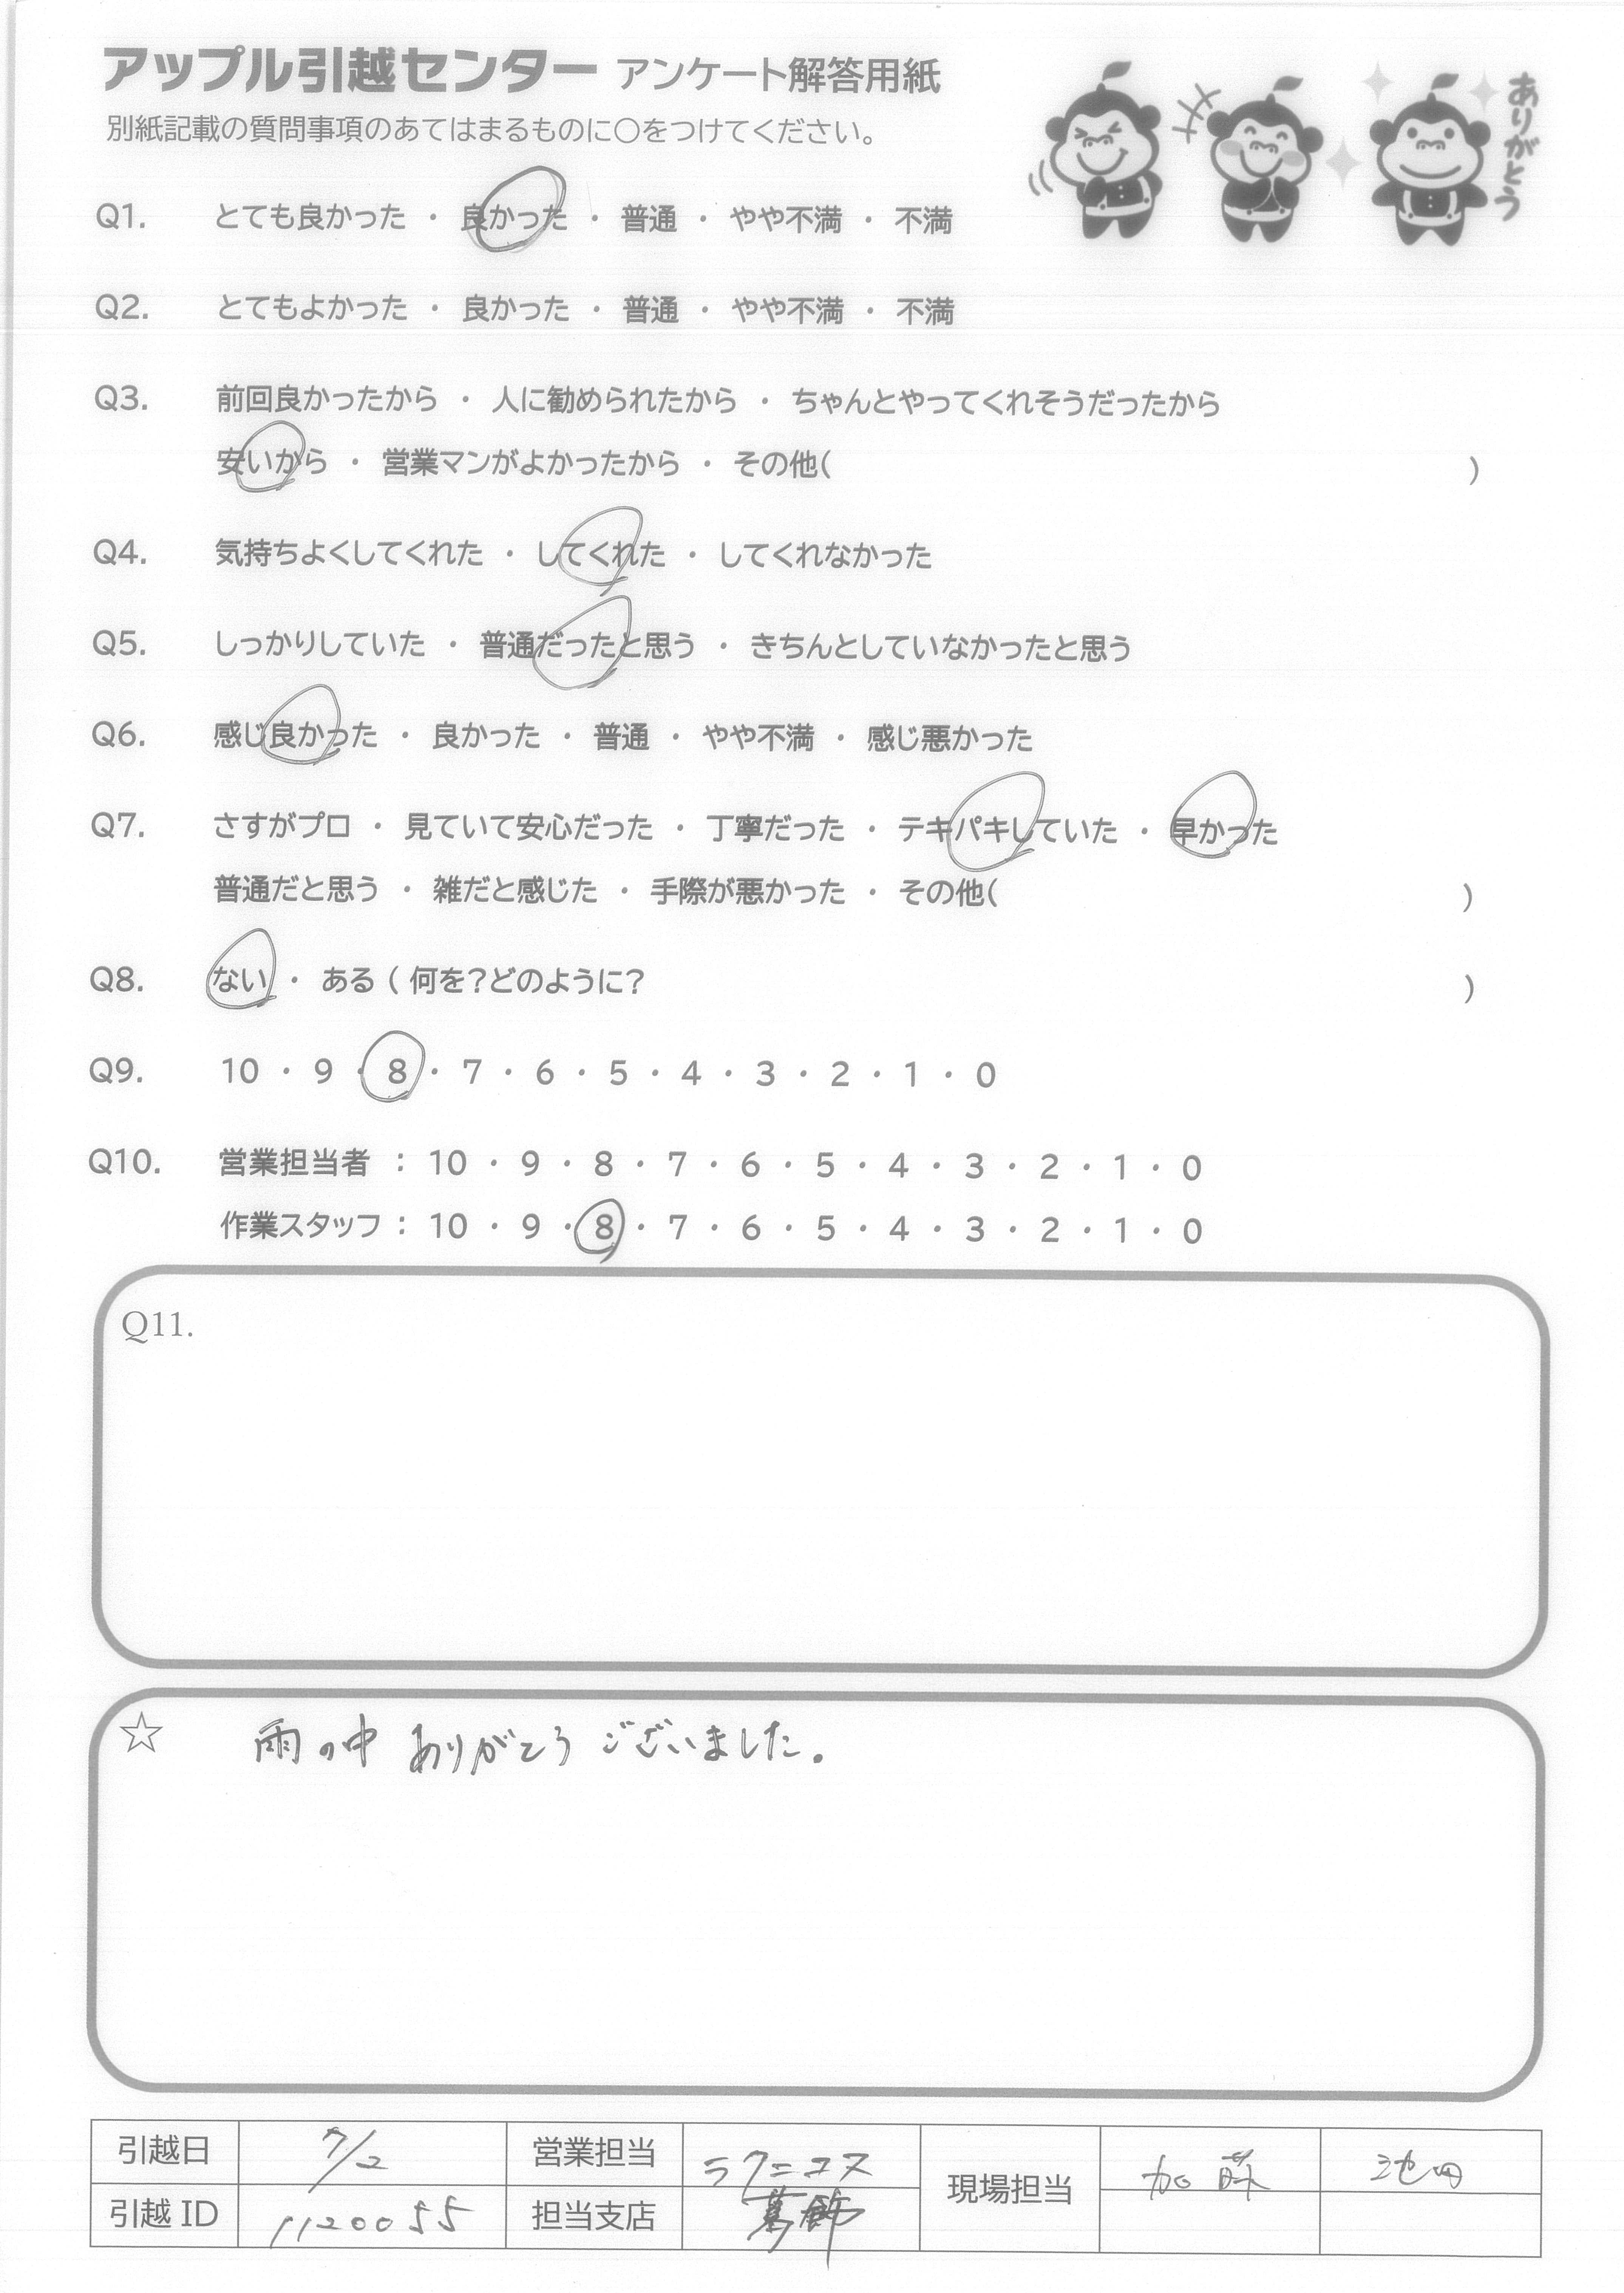 アップル引越センター アンケート解答用紙
ありがとう
別紙記載の質問事項のあてはまるものに○をつけてください。
Q1. とても良かった ・ 良かった ・ 普通 ・ やや不満 ・ 不満
Q2. とてもよかった ・ 良かった ・ 普通 ・ やや不満 ・ 不満
Q3. 前回良かったから ・ 人に勧められたから ・ ちゃんとやってくれそうだったから
安いから ・ 営業マンがよかったから ・ その他( )
Q4. 気持ちよくしてくれた ・ してくれた ・ してくれなかった
Q5. しっかりしていた ・ 普通だったと思う ・ きちんとしていなかったと思う
Q6. 感じ良かった ・ 良かった ・ 普通 ・ やや不満 ・ 感じ悪かった
Q7. さすがプロ ・ 見ていて安心だった ・ 丁寧だった ・ テキパキしていた ・ 早かった
普通だと思う ・ 雑だと感じた ・ 手際が悪かった ・ その他( )
Q8. ない ・ ある ( 何を?どのように? )
Q9. 10 ・ 9 ・ 8 ・ 7 ・ 6 ・ 5 ・ 4 ・ 3 ・ 2 ・ 1 ・ 0
Q10. 営業担当者 : 10 ・ 9 ・ 8 ・ 7 ・ 6 ・ 5 ・ 4 ・ 3 ・ 2 ・ 1 ・ 0
作業スタッフ : 10 ・ 9 ・ 8 ・ 7 ・ 6 ・ 5 ・ 4 ・ 3 ・ 2 ・ 1 ・ 0
Q11.
☆ 雨の中 ありがとうございました。
引越日 7/2 営業担当 ラクニコス 現場担当 加藤 池田
引越 ID 1120055 担当支店 葛飾